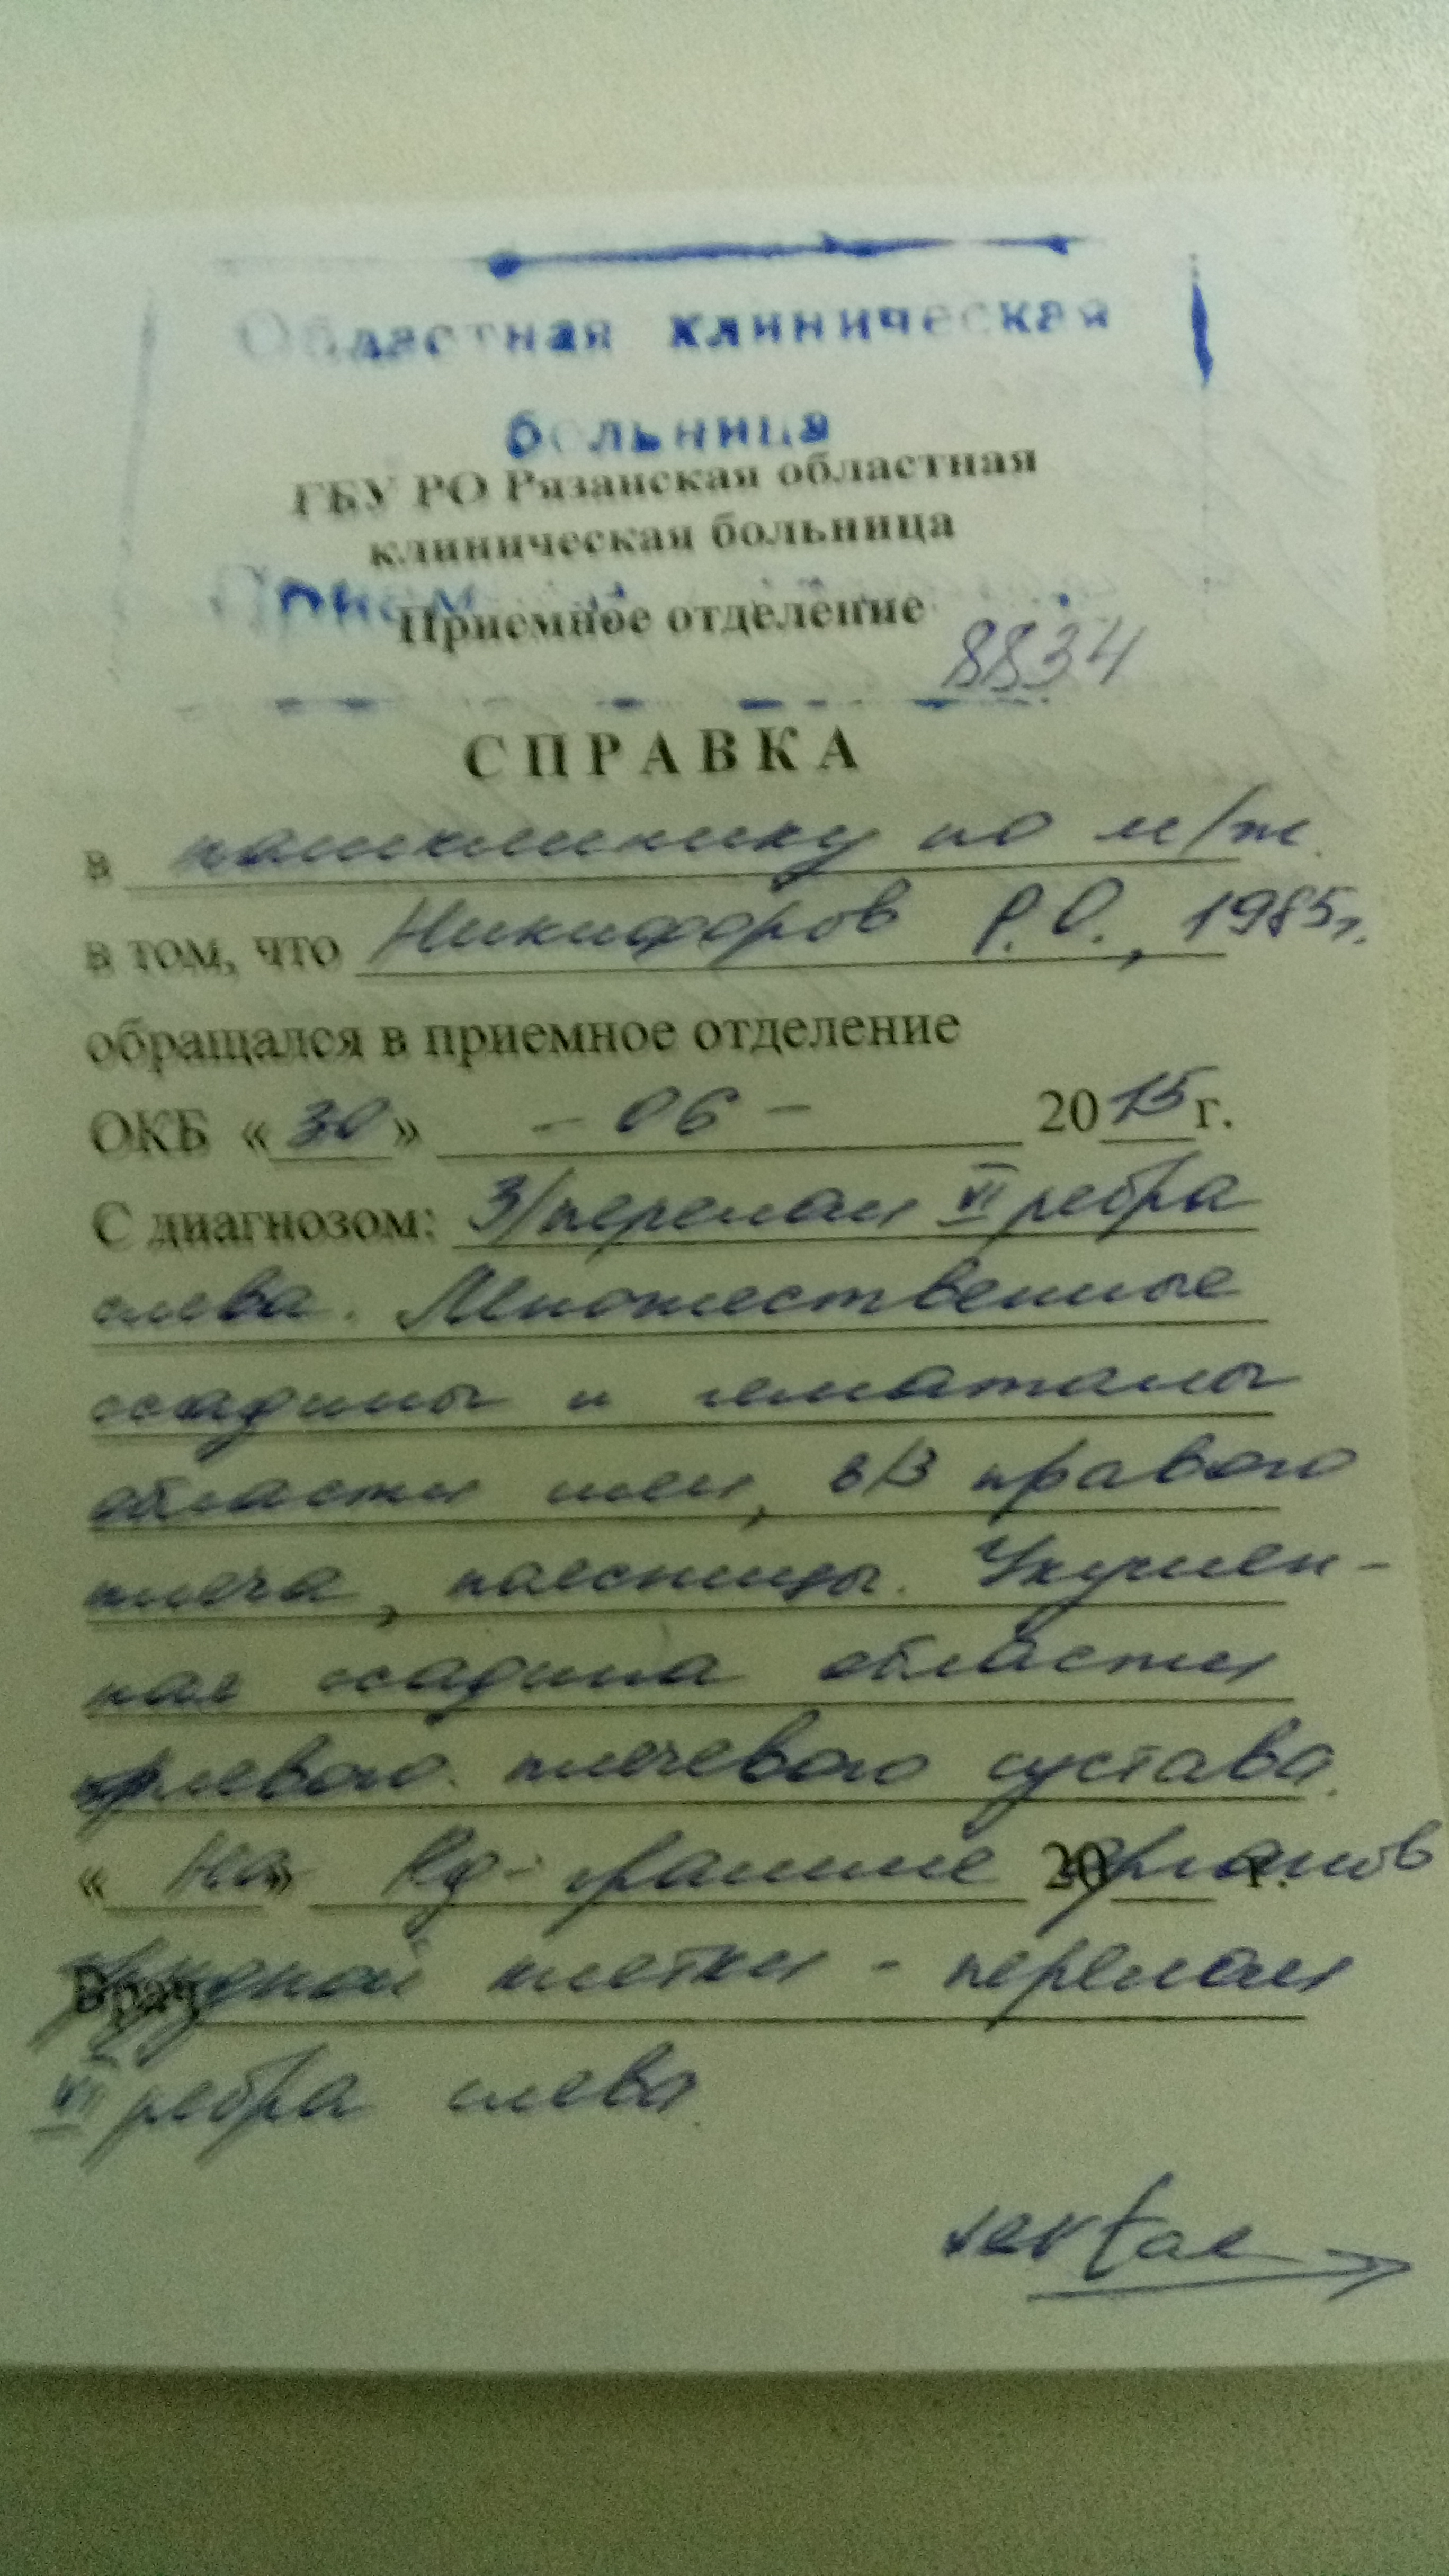 Областная клиническая
больница
ГБУ РО Рязанская областная
клиническая больница
Прием
Приемное отделение
8834
СПРАВКА
в поликлинику по м/ж.
в том, что Никифоров Р.О., 1985г.
обращался в приемное отделение
ОКБ «30» - 06 - 2015 г.
С диагнозом: З/перелом VI ребра
слева. Множественные
ссадины и гематомы
области шеи, в/3 правого
плеча, поясницы. Укушен-
ная ссадина области
левого плечевого сустава.
« На » Rg-грамме 20 органов г.
Врач грудной клетки - перелом
VI ребра слева.